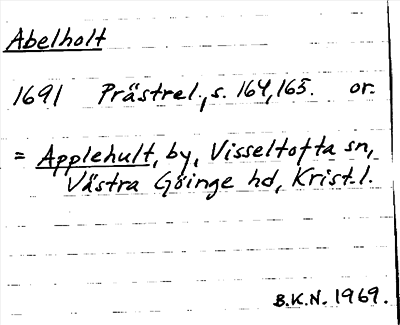 Abelholt
1691 Prästrel., s. 164, 165. or.
= Applehult, by, Visseltofta sn,
Västra Göinge hd, Krist. l.
B.K.N. 1969.